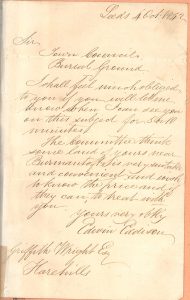 Leeds 4 Oct 184
Sir,
Town Council
Burial Ground
I shall feel much obliged
to you if you will let me
know when I can see you
on this subject for 5 or 10
minutes
The Committee think
some land of yours near
Burmantofts very suitable
and convenient and wish
to know the price and if
they can to treat with
you
Yours very obtly
Edwin Eddison
Griffith Wright Esq
Harehills